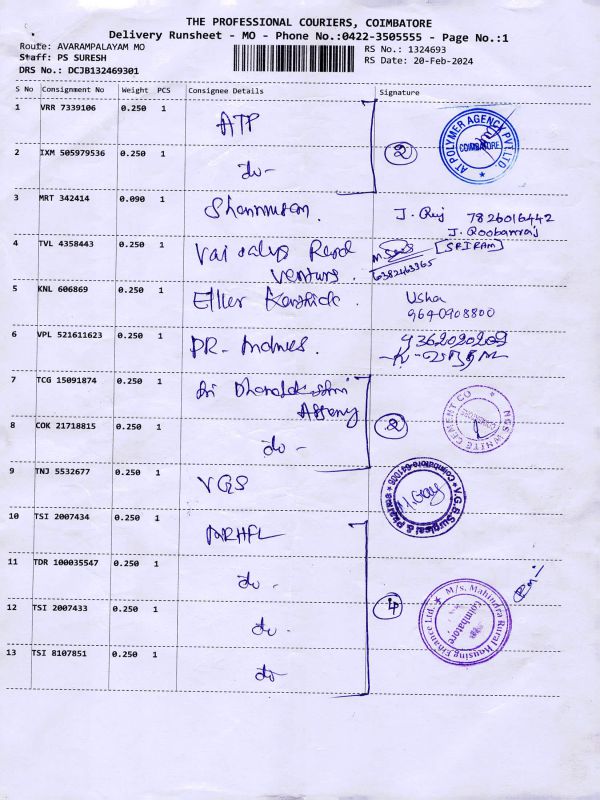 THE PROFESSIONAL COURIERS, COIMBATORE
Delivery Runsheet - MO - Phone No.:0422-3505555 - Page No.:1
Route: AVARAMPALAYAM MO RS No.: 1324693
Staff: PS SURESH RS Date: 20-Feb-2024
DRS No.: DCJB132469301
S No Consignment No Weight PCS Consignee Details Signature
1 VRR 7339106 0.250 1 ATP
AT POLYMER AGENCY PVT LTD
COIMBATORE
2 IXM 505979536 0.250 1 do- 2
3 MRT 342414 0.090 1 J. 7826016442
J.
4 TVL 4358443 0.250 1 [SRIRAM]
6382463365
5 KNL 606869 0.250 1 Usha
964-0908800
6 VPL 521611623 0.250 1 PR- 9362020209
7 TCG 15091874 0.250 1 Sri
NGS WHITE CEMENT CO
8 COK 21718815 0.250 1 do - 2
9 TNJ 5532677 0.250 1 VGS
V.G.S. Surgical & Pharma
Coimbatore-641006
10 TSI 2007434 0.250 1 MRHFL
11 TDR 100035547 0.250 1 do -
12 TSI 2007433 0.250 1 do - 4
M/s. Mahindra Rural Housing Finance Ltd.
Coimbatore
13 TSI 8107851 0.250 1 do